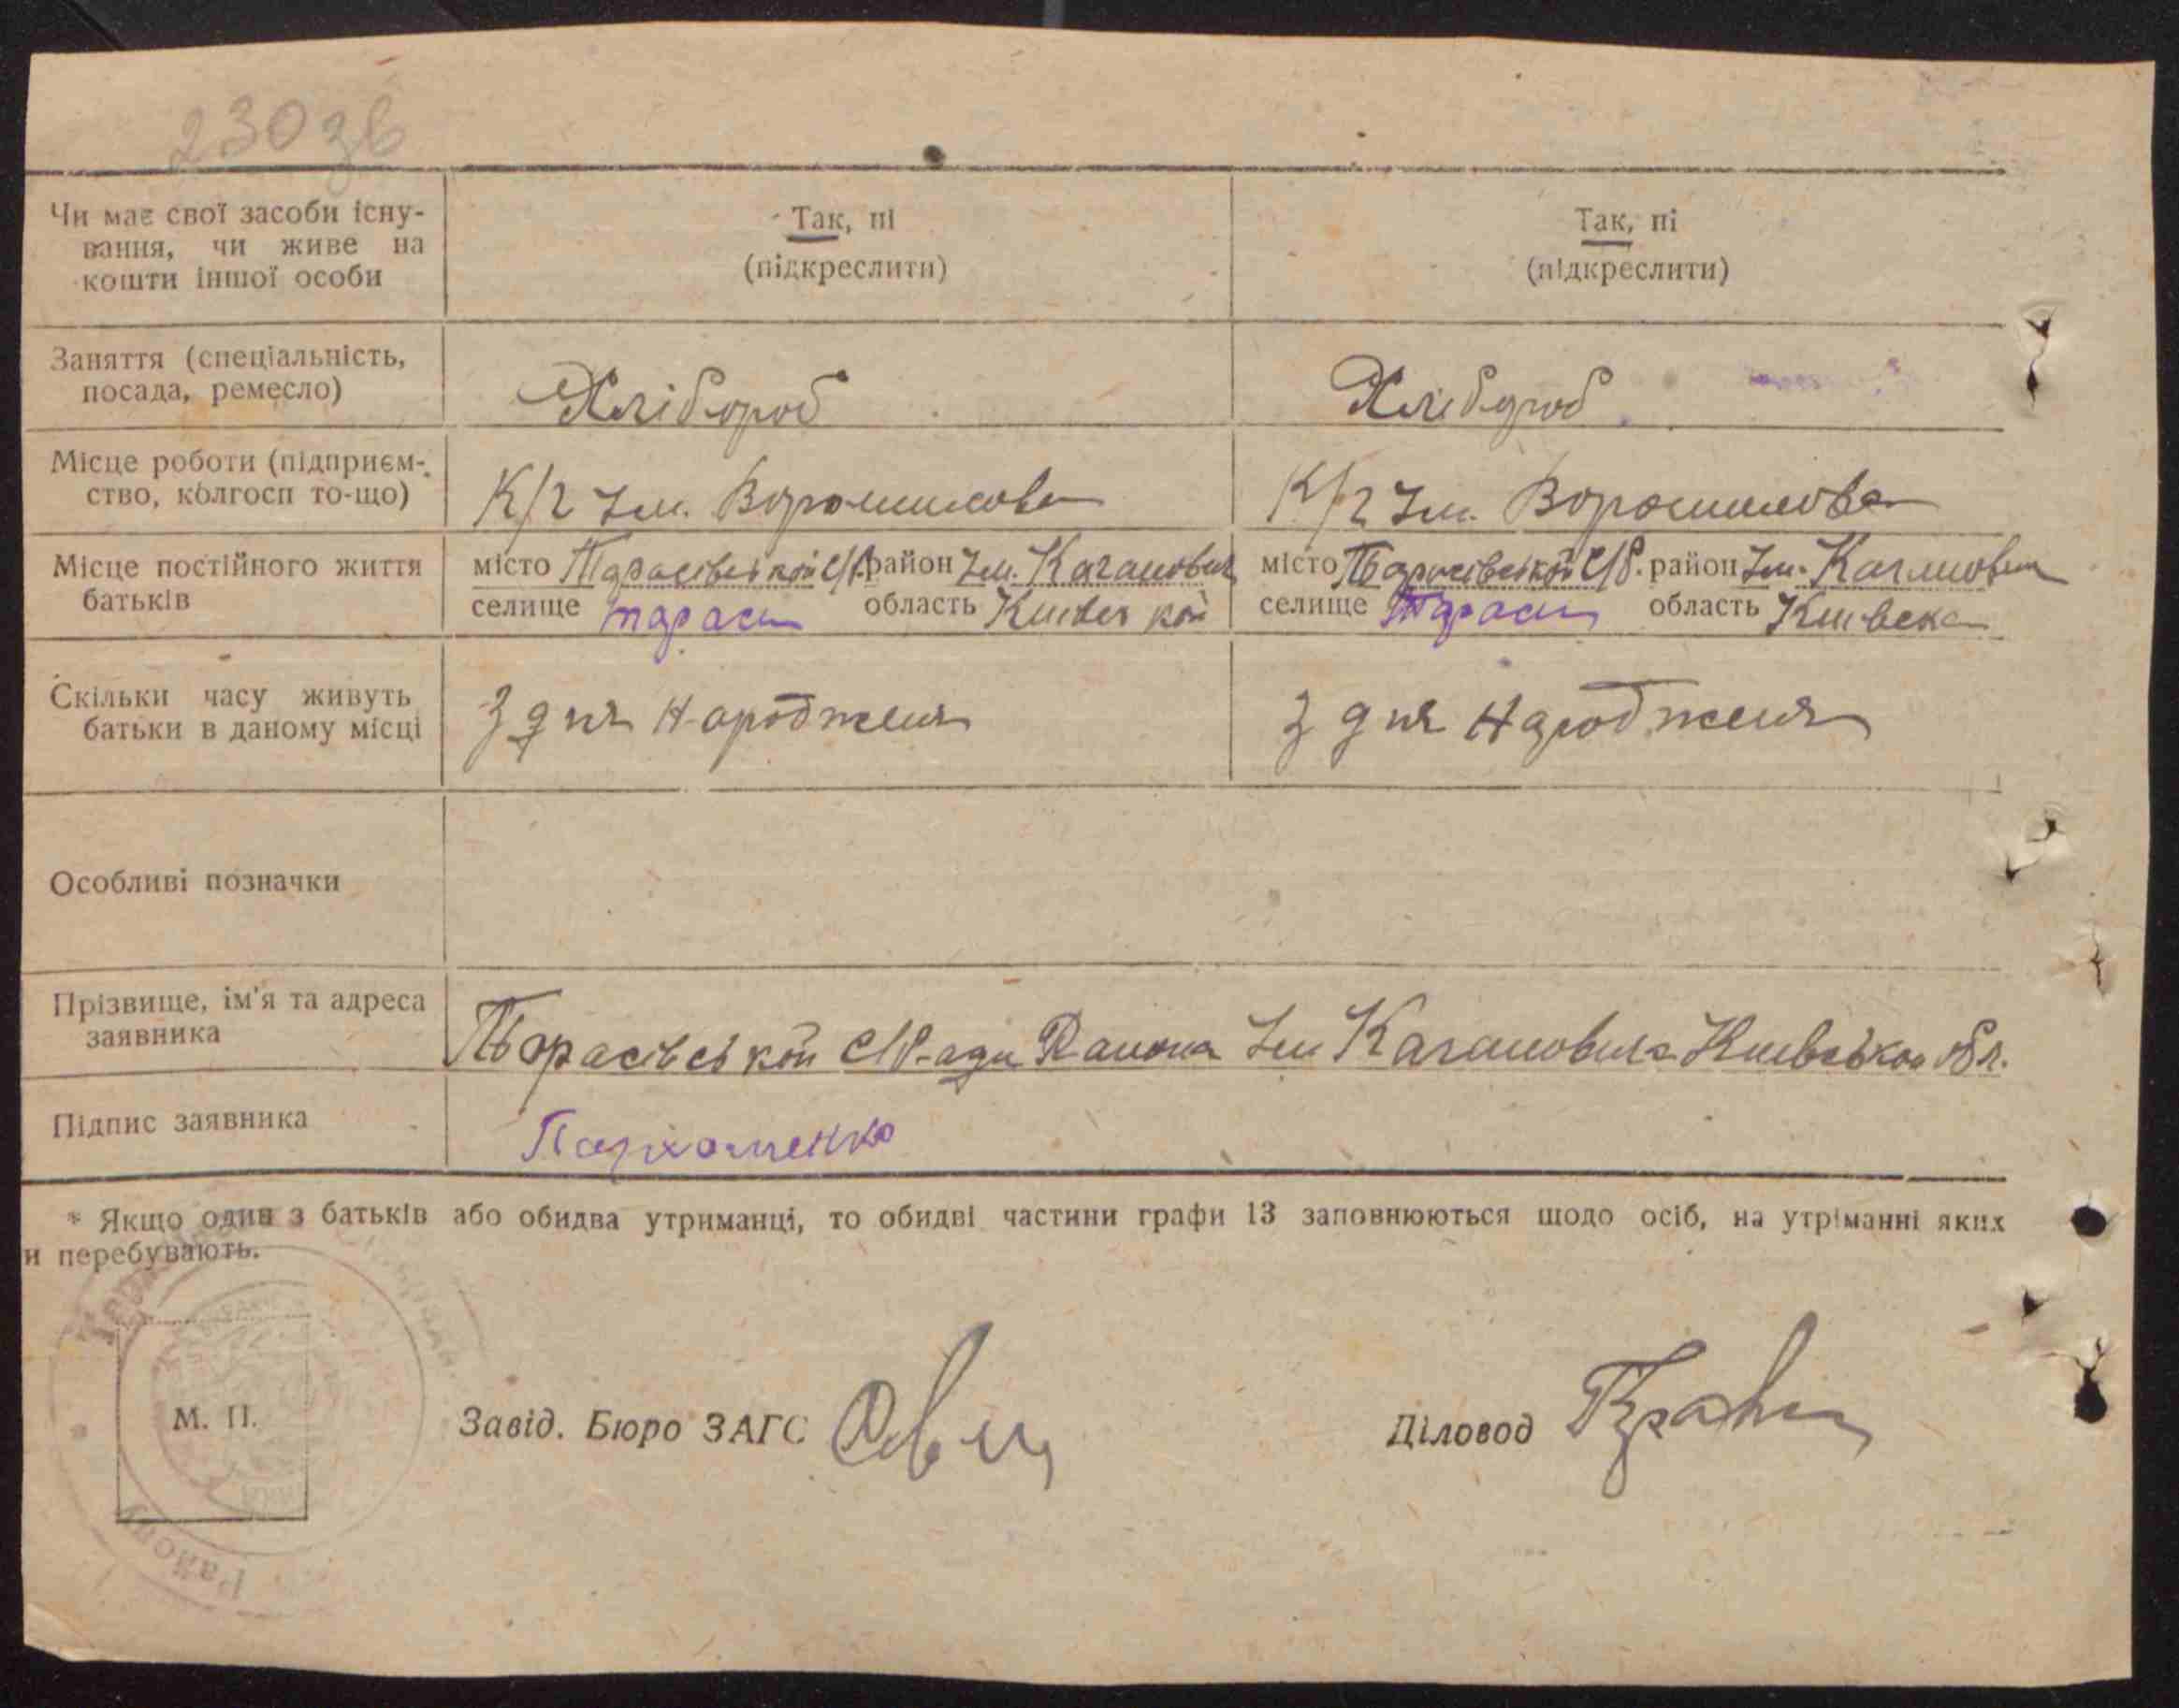 230зв
Чи має свої засоби існу-
вання, чи живе на
кошти іншої особи
Так, ні
(підкреслити)
Так, ні
(підкреслити)
Заняття (спеціальність,
посада, ремесло)
Хлібороб
Хлібороб
Місце роботи (підприєм-
ство, колгосп то-що)
К/г Ім. Ворошилова
К/г Ім. Ворошилова
Місце постійного життя
батьків
місто Тарасівської С/Р. район Ім. Кагановича
селище Тараси область Київської
місто Тарасівської С/Р. район Ім. Кагановича
селище Тараси область Київська
Скільки часу живуть
батьки в даному місці
З дня Народженя
З дня Народженя
Особливі позначки
Прізвище, ім'я та адреса
заявника
Тарасівської С/Р-ади Района Ім Кагановича Київської обл.
Підпис заявника
Пархоменко
* Якщо один з батьків або обидва утриманці, то обидві частини графи 13 заповнюються щодо осіб, на утріманні яких
и перебувають.
М. П.
Району
Завід. Бюро ЗАГС
Діловод